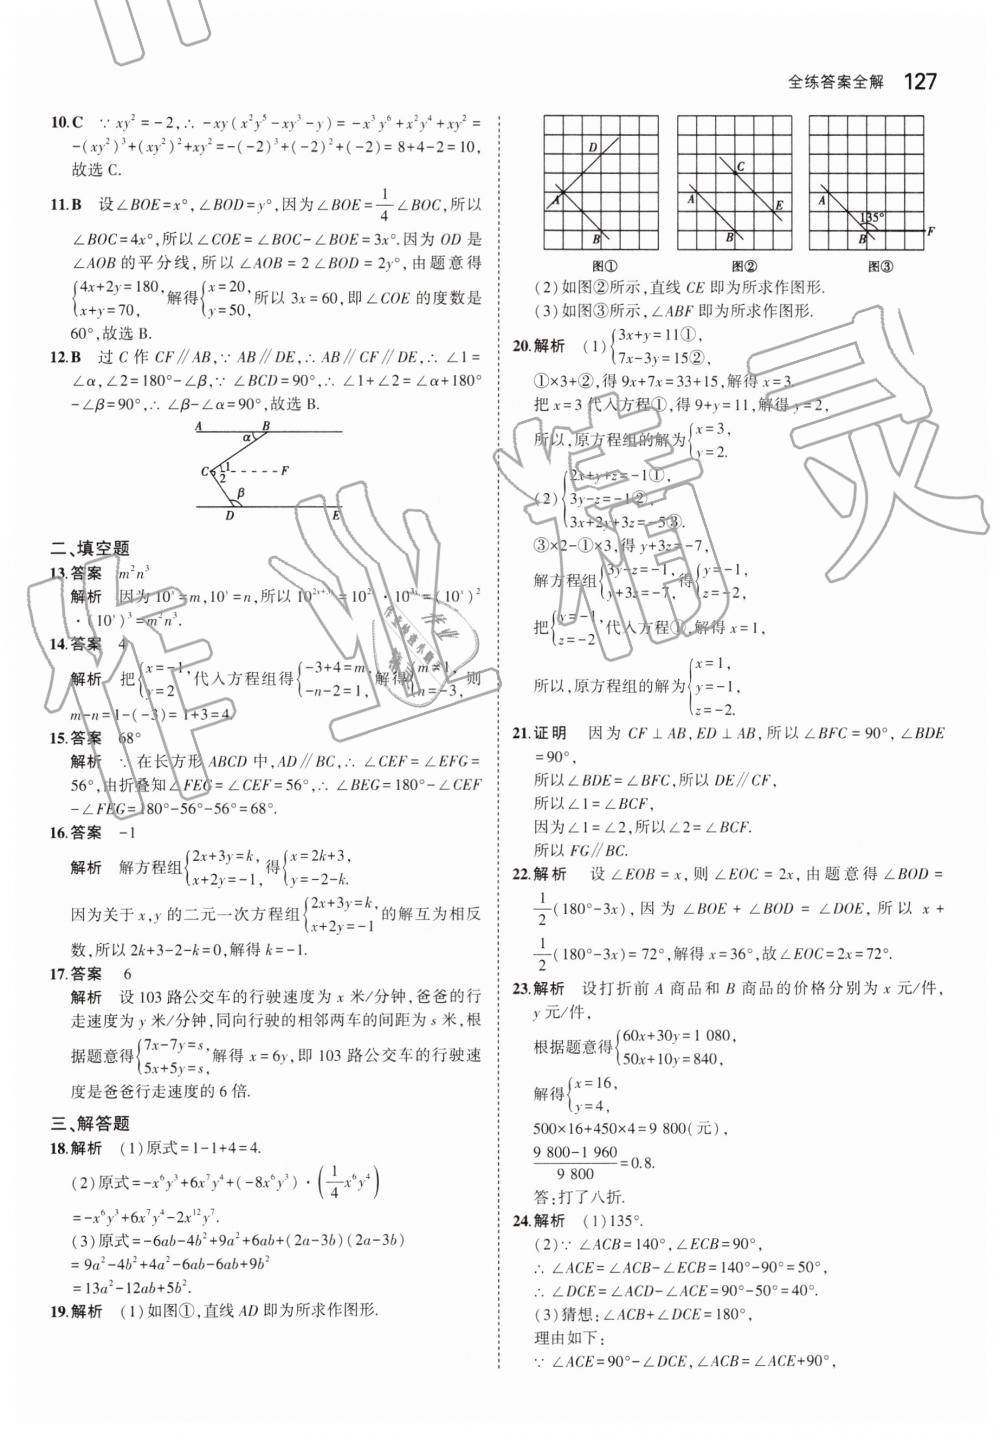 全练答案全解 127
10.C ∵ xy²=-2,∴ -xy(x²y⁵-xy³-y)=-x³y⁶+x²y⁴+xy²=
-(xy²)³+(xy²)²+xy²=-(-2)³+(-2)²+(-2)=8+4-2=10,
故选 C.
11.B 设∠BOE=x°,∠BOD=y°,因为∠BOE=1/4∠BOC,所以
∠BOC=4x°,所以∠COE=∠BOC-∠BOE=3x°.因为 OD 是
∠AOB的平分线,所以∠AOB=2∠BOD=2y°,由题意得
{4x+2y=180, x+y=70, 解得{x=20, y=50, 所以 3x=60,即∠COE 的度数是
60°,故选 B.
12.B 过 C 作 CF∥AB,∵ AB∥DE,∴ AB∥CF∥DE,∴ ∠1=
∠α,∠2=180°-∠β,∵ ∠BCD=90°,∴ ∠1+∠2=∠α+180°
-∠β=90°,∴ ∠β-∠α=90°,故选 B.
A B
α
C 1 2 F
β
D E
二、填空题
13.答案 m²n³
解析 因为 10ˣ=m,10ʸ=n,所以 10²ˣ⁺³ʸ=10²ˣ·10³ʸ=(10ˣ)²
·(10ʸ)³=m²n³.
14.答案 4
解析 把{x=-1, y=2 代入方程组得{-3+4=m, -n-2=1, 解得{m=1, n=-3, 则
m-n=1-(-3)=1+3=4.
15.答案 68°
解析 ∵ 在长方形 ABCD 中,AD∥BC,∴ ∠CEF=∠EFG=
56°,由折叠知∠FEG=∠CEF=56°,∴ ∠BEG=180°-∠CEF
-∠FEG=180°-56°-56°=68°.
16.答案 -1
解析 解方程组{2x+3y=k, x+2y=-1, 得{x=2k+3, y=-2-k.
因为关于 x,y 的二元一次方程组{2x+3y=k, x+2y=-1 的解互为相反
数,所以 2k+3-2-k=0,解得 k=-1.
17.答案 6
解析 设 103 路公交车的行驶速度为 x 米/分钟,爸爸的行
走速度为 y 米/分钟,同向行驶的相邻两车的间距为 s 米,根
据题意得{7x-7y=s, 5x+5y=s, 解得 x=6y,即 103 路公交车的行驶速
度是爸爸行走速度的 6 倍.
三、解答题
18.解析 (1)原式=1-1+4=4.
(2)原式=-x⁶y³+6x⁷y⁴+(-8x⁶y³)·(1/4x⁶y⁴)
=-x⁶y³+6x⁷y⁴-2x¹²y⁷.
(3)原式=-6ab-4b²+9a²+6ab+(2a-3b)(2a-3b)
=9a²-4b²+4a²-6ab-6ab+9b²
=13a²-12ab+5b².
19.解析 (1)如图①,直线 AD 即为所求作图形.
D A B
C A E B
A 135° B F
图① 图② 图③
(2)如图②所示,直线 CE 即为所求作图形.
(3)如图③所示,∠ABF 即为所求作图形.
20.解析 (1){3x+y=11①, 7x-3y=15②,
①×3+②,得 9x+7x=33+15,解得 x=3.
把 x=3 代入方程①,得 9+y=11,解得 y=2,
所以,原方程组的解为{x=3, y=2.
(2){2x+y+z=-1①, 3y-z=-1②, 3x+2y+3z=-5③.
③×2-①×3,得 y+3z=-7,
解方程组{3y-z=-1, y+3z=-7, 得{y=-1, z=-2,
把{y=-1, z=-2 代入方程①,解得 x=1,
所以,原方程组的解为{x=1, y=-1, z=-2.
21.证明 因为 CF⊥AB,ED⊥AB,所以∠BFC=90°,∠BDE
=90°,
所以∠BDE=∠BFC,所以 DE∥CF,
所以∠1=∠BCF,
因为∠1=∠2,所以∠2=∠BCF.
所以 FG∥BC.
22.解析 设∠EOB=x,则∠EOC=2x,由题意得∠BOD=
1/2(180°-3x),因为∠BOE+∠BOD=∠DOE,所以 x+
1/2(180°-3x)=72°,解得 x=36°,故∠EOC=2x=72°.
23.解析 设打折前 A 商品和 B 商品的价格分别为 x 元/件,
y 元/件,
根据题意得{60x+30y=1 080, 50x+10y=840,
解得{x=16, y=4,
500×16+450×4=9 800(元),
(9 800-1 960)/9 800=0.8.
答:打了八折.
24.解析 (1)135°.
(2)∵ ∠ACB=140°,∠ECB=90°,
∴ ∠ACE=∠ACB-∠ECB=140°-90°=50°,
∴ ∠DCE=∠ACD-∠ACE=90°-50°=40°.
(3)猜想:∠ACB+∠DCE=180°,
理由如下:
∵ ∠ACE=90°-∠DCE,∠ACB=∠ACE+90°,
作业精灵